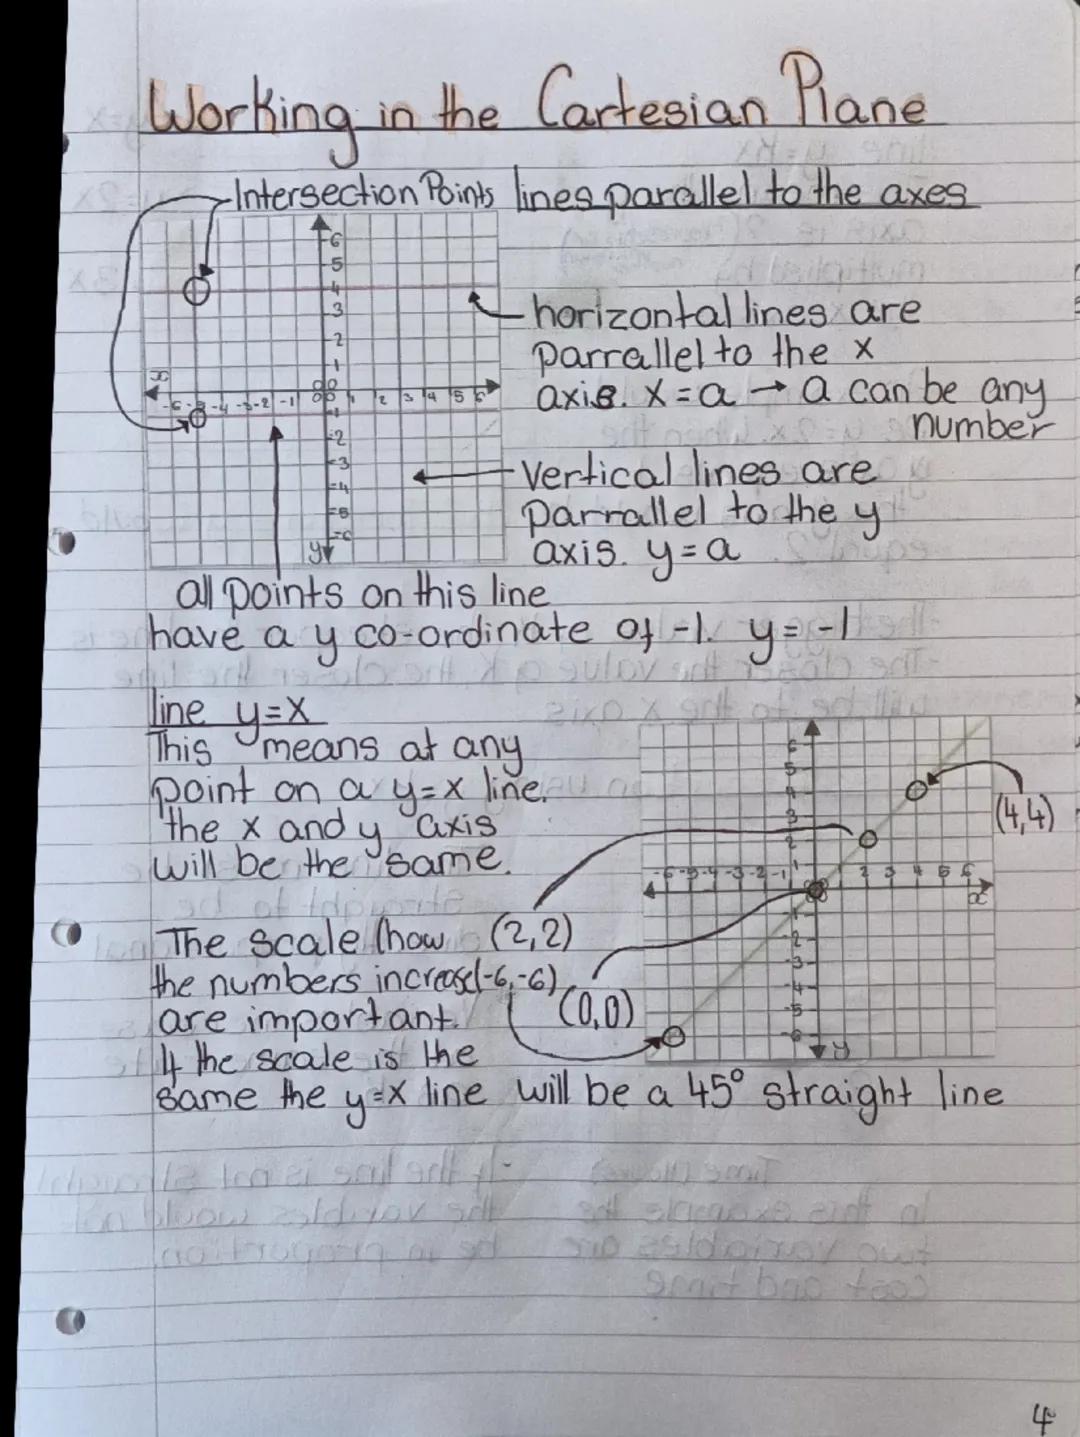 Working in the Cartesian Plane
Intersection Points lines parallel to the axes
6
5
4
3
2
1
x
0 0
0 0
-6 -5 -4 -3 -2 -1 1 2 3 4 5 6
-1
-2
-3
-4
-5
-6
y
horizontal lines are
parrallel to the x
axis. x = a → a can be any
number
vertical lines are
parrallel to the y
axis. y = a
all points on this line
have a y co-ordinate of -1. y = -1
line y=x
This means at any
point on a y=x line.
the x and y axis
will be the same.
6
5
4
3
2
1
(4,4)
-6 -5 -4 -3 -2 -1 2 3 4 5 6
x
-1
-2
-3
-4
-5
-6
y
The scale (how (2,2)
the numbers increase) (-6,-6)
are important. (0,0)
If the scale is the
same the y=x line will be a 45° straight line
4